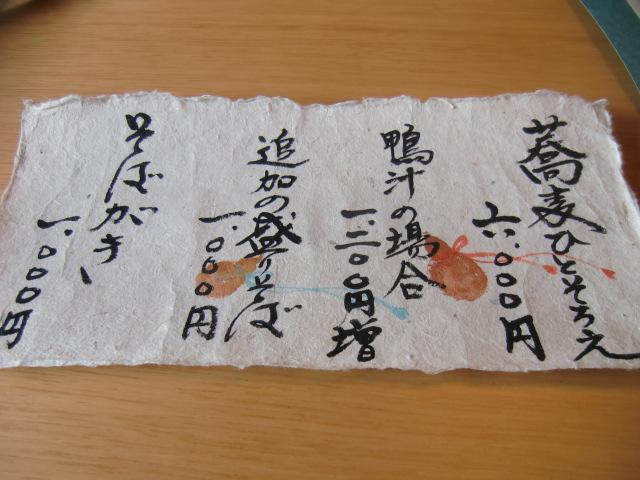 蕎麦ひとそろえ
六、〇〇〇円
鴨汁の場合
一、二〇〇円増
追加の盛りそば
一、〇〇〇円
そばがき
一、〇〇〇円